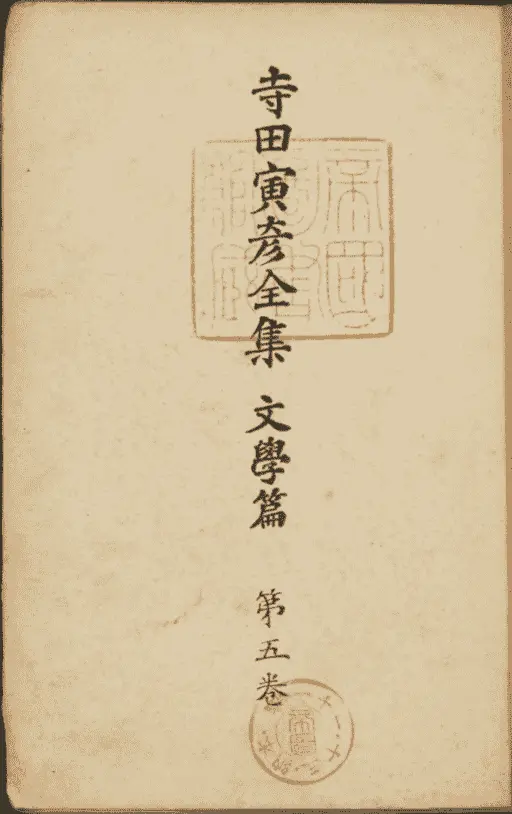 寺田寅彦全集 文學篇 第五卷